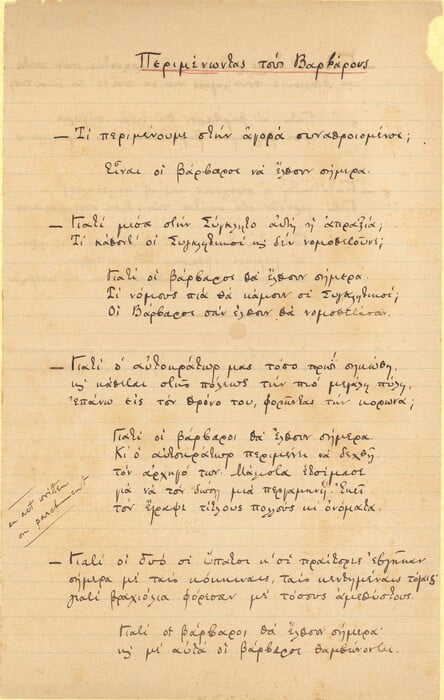 Περιμένωντας τούς Βαρβάρους
— Τί περιμένουμε στήν ἀγορά συναθροισμένοι;
Εἶναι οἱ βάρβαροι νά ἔλθουν σήμερα.
— Γιατί μέσα στήν Σύγκλητο αὐτή ἡ ἀπραξία;
Τί κάθοντ' οἱ Συγκλητικοί κ̣ δέν νομοθετοῦνε;
Γιατί οἱ βάρβαροι θά ἔλθουν σήμερα.
Τί νόμους πιά θά κάμουν οἱ Συγκλητικοί;
Οἱ Βάρβαροι σάν ἔλθουν θά νομοθετήσουν.
— Γιατί ὁ αὐτοκράτωρ μας τόσο πρωΐ σηκώθη,
κ̣ κάθεται στῆς πόλεως τήν πιό μεγάλη πύλη,
ἐπάνω εἰς τόν θρόνο του, φορῶντας τήν κορώνα;
Γιατί οἱ βάρβαροι θά ἔλθουν σήμερα.
Κι ὁ αὐτοκράτωρ περιμένει νά δεχθῇ
τόν ἀρχηγό των. Μάλιστα ἑτοίμασε
γιά νά τόν δώσῃ μιά περγαμηνή. Ἐκεῖ
τόν ἔγραψε τίτλους πολλούς κι ὀνόματα.
not written
on parchment
— Γιατί οἱ δυό οἱ ὕπατοι κ' οἱ πραίτορες ἐβγῆκαν
σήμερα μέ ταίς κόκκιναις, ταίς κεντημέναις τόγαις·
γιατί βραχιόλια φόρεσαν μέ τόσους ἀμεθύστους
Γιατί οἱ βάρβαροι θά ἔλθουν σήμερα·
κ̣ μέ αὐτά οἱ βάρβαροι θαμβώνονται.